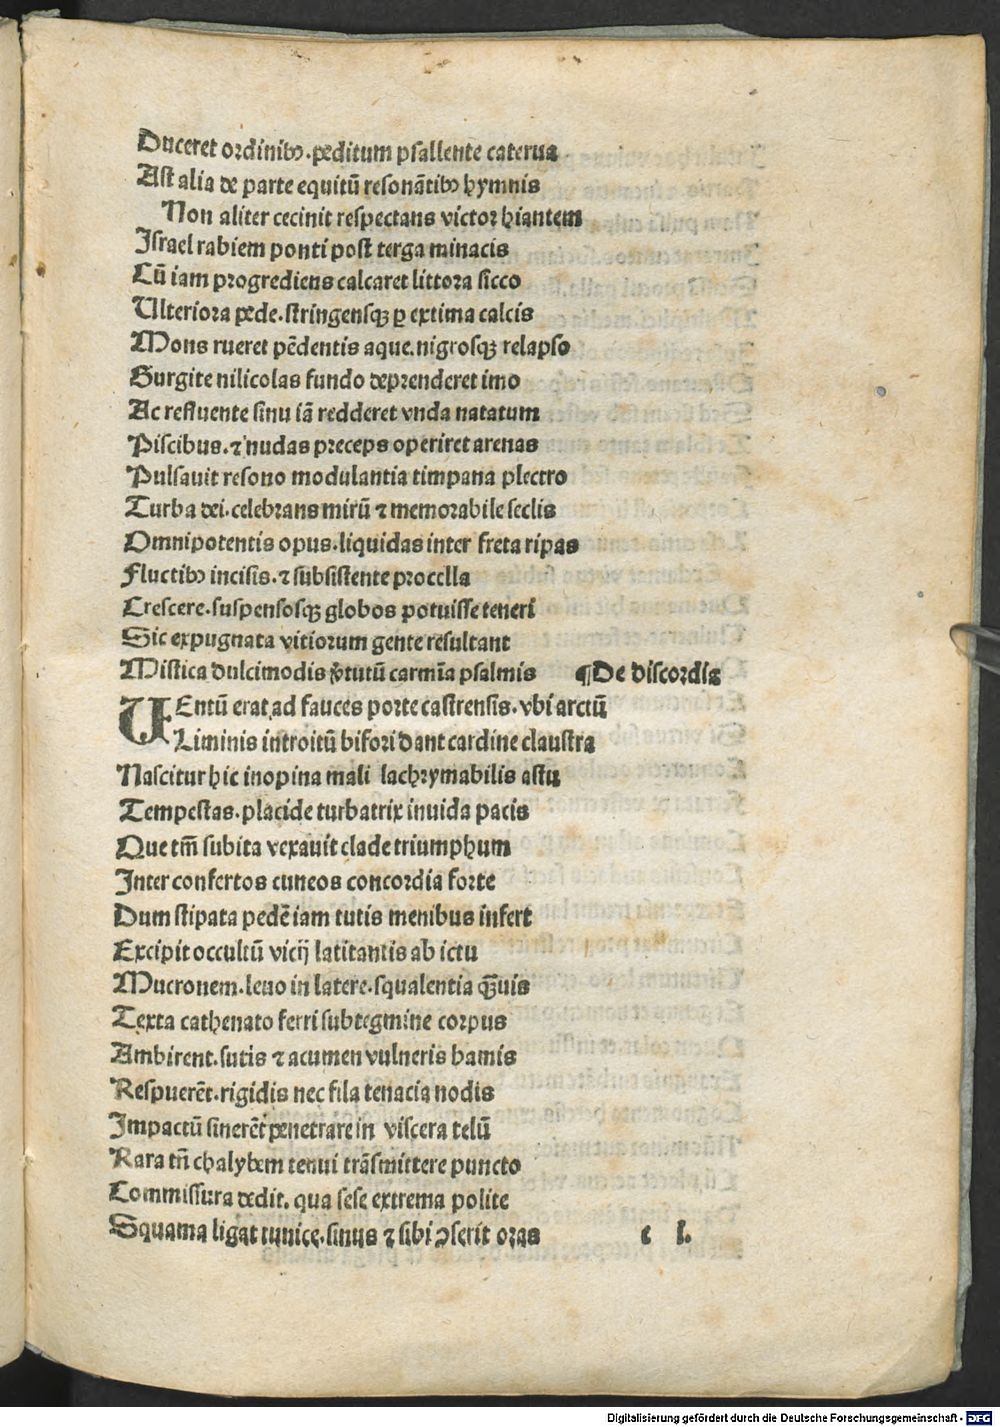 Duceret ordinibꝰ. peditum psallente caterua
Ast alia de parte equitū resonātibꝰ hymnis
Non aliter cecinit respectans victor hiantem
Israel rabiem ponti post terga minacis
Cū iam progrediens calcaret littora sicco
Ulteriora pede. stringensqꝫ ꝑ extima calcis
Mons rueret pēdentis aque. nigrosqꝫ relapso
Gurgite nilicolas fundo deprenderet imo
Ac refluente sinu iā redderet vnda natatum
Piscibus. ⁊ nudas preceps operiret arenas
Pulsauit resono modulantia timpana plectro
Turba dei. celebrans mirū ⁊ memorabile seclis
Omnipotentis opus. liquidas inter freta ripas
Fluctibꝰ incisis. ⁊ subsistente procella
Crescere. suspensosqꝫ globos potuisse teneri
Sic expugnata vitiorum gente resultant
Mistica dulcimodis v̄tutū carmīa psalmis ¶De discordia
UEntū erat ad fauces porte castrensis. vbi arctū
Liminis introitū bifori dant cardine claustra
Nascitur hic inopina mali lachrymabilis astu
Tempestas. placide turbatrix inuida pacis
Que tm̄ subita vexauit clade triumphum
Inter confertos cuneos concordia forte
Dum stipata pedē iam tutis menibus infert
Excipit occultū vicij latitantis ab ictu
Mucronem. leuo in latere. squalentia qꝫ̄uis
Texta cathenato ferri subtegmine corpus
Ambirent. sutis ⁊ acumen vulneris hamis
Respuerēt. rigidis nec fila tenacia nodis
Impactū sinerēt penetrare in viscera telū
Rara tn̄ chalybem tenui trāsmittere puncto
Commissura dedit. qua sese extrema polite
Squama ligat tunicę. sinus ⁊ sibi ꝯserit oras e i.
Digitalisierung gefördert durch die Deutsche Forschungsgemeinschaft - DFG